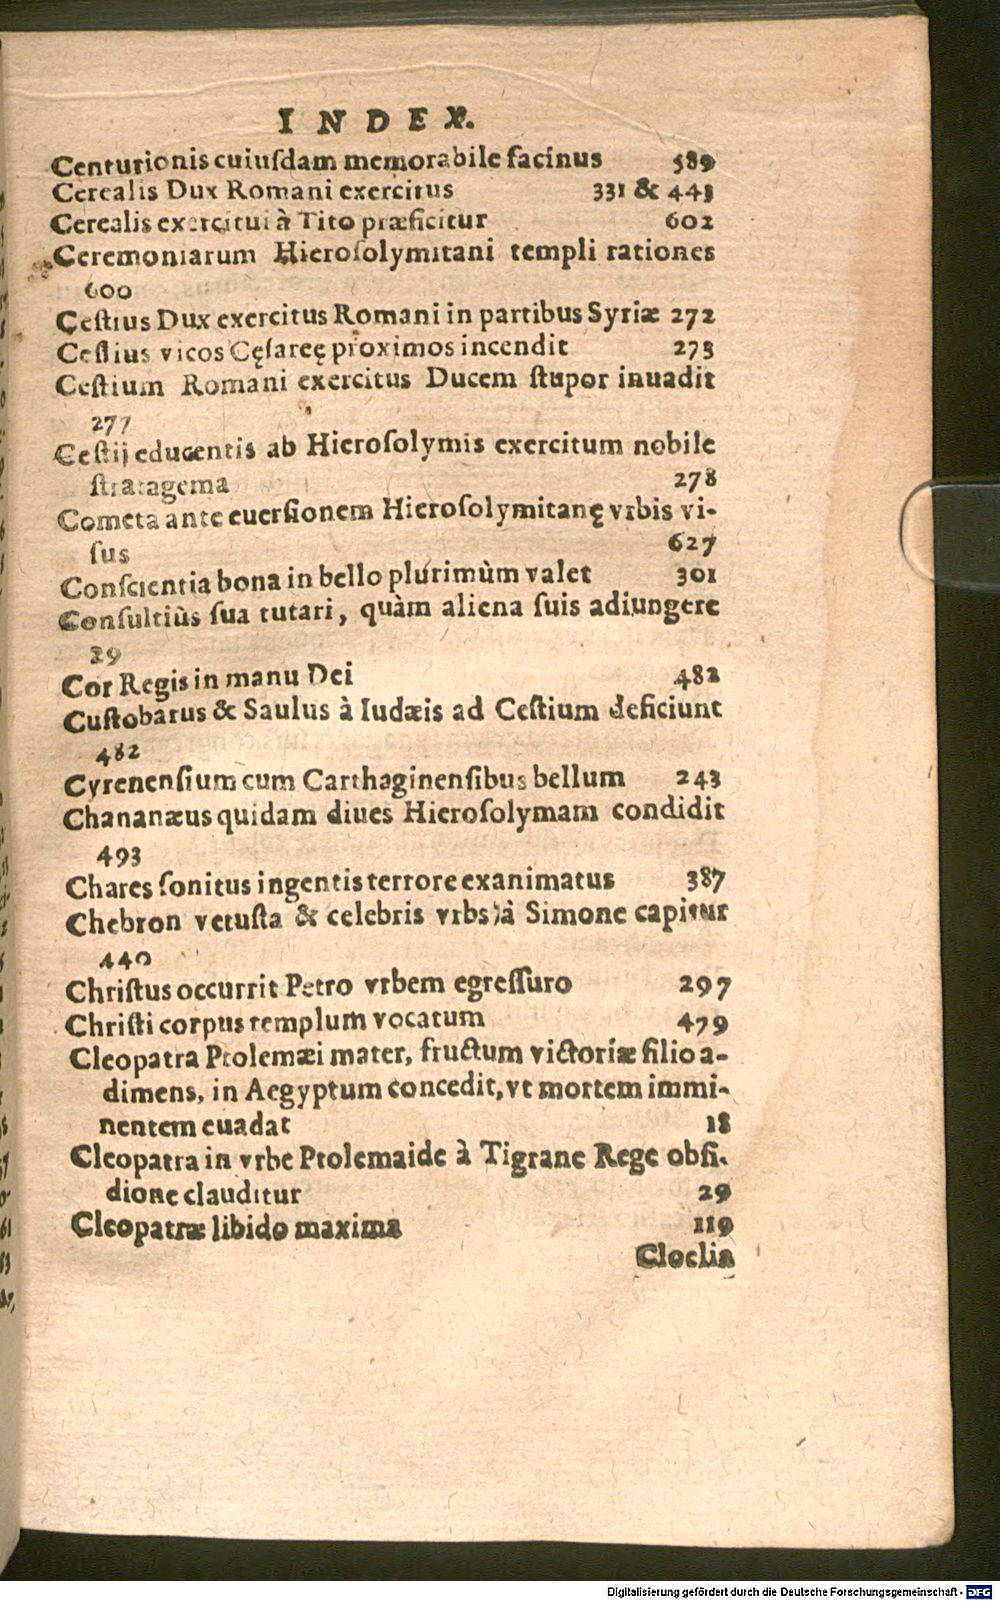 INDEX.
Centurionis cuiuſdam memorabile facinus 589
Cerealis Dux Romani exercitus 331 & 443
Cerealis exercitui à Tito præficitur 602
Ceremoniarum Hieroſolymitani templi rationes
600
Ceſtius Dux exercitus Romani in partibus Syriæ 272
Ceſtius vicos Cęſareę proximos incendit 273
Ceſtium Romani exercitus Ducem ſtupor inuadit
277
Ceſtij educentis ab Hieroſolymis exercitum nobile
ſtratagema 278
Cometa ante euerſionem Hieroſolymitanę vrbis vi-
ſus 627
Conſcientia bona in bello plurimùm valet 301
Conſultiùs ſua tutari, quàm aliena ſuis adiungere
29
Cor Regis in manu Dei 482
Cuſtobarus & Saulus à Iudæis ad Ceſtium deficiunt
482
Cyrenenſium cum Carthaginenſibus bellum 243
Chananæus quidam diues Hieroſolymam condidit
493
Chares ſonitus ingentis terrore exanimatus 387
Chebron vetuſta & celebris vrbs à Simone capitur
440
Chriſtus occurrit Petro vrbem egreſſuro 297
Chriſti corpus templum vocatum 479
Cleopatra Ptolemæi mater, fructum victoriæ filio a-
dimens, in Aegyptum concedit, vt mortem immi-
nentem euadat 18
Cleopatra in vrbe Ptolemaide à Tigrane Rege obſi-
dione clauditur 29
Cleopatræ libido maxima 119
Cloelia
Digitalisierung gefördert durch die Deutsche Forschungsgemeinschaft - DFG